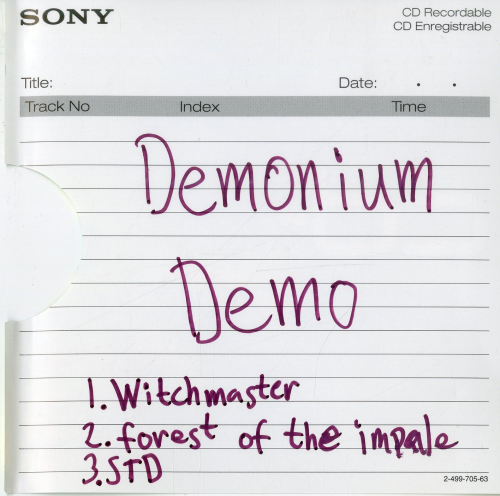 SONY
CD Recordable
CD Enregistrable
Title:
Date: . .
Track No Index Time
Demonium
Demo
1. Witchmaster
2. forest of the impale
3. STD
2-499-705-63